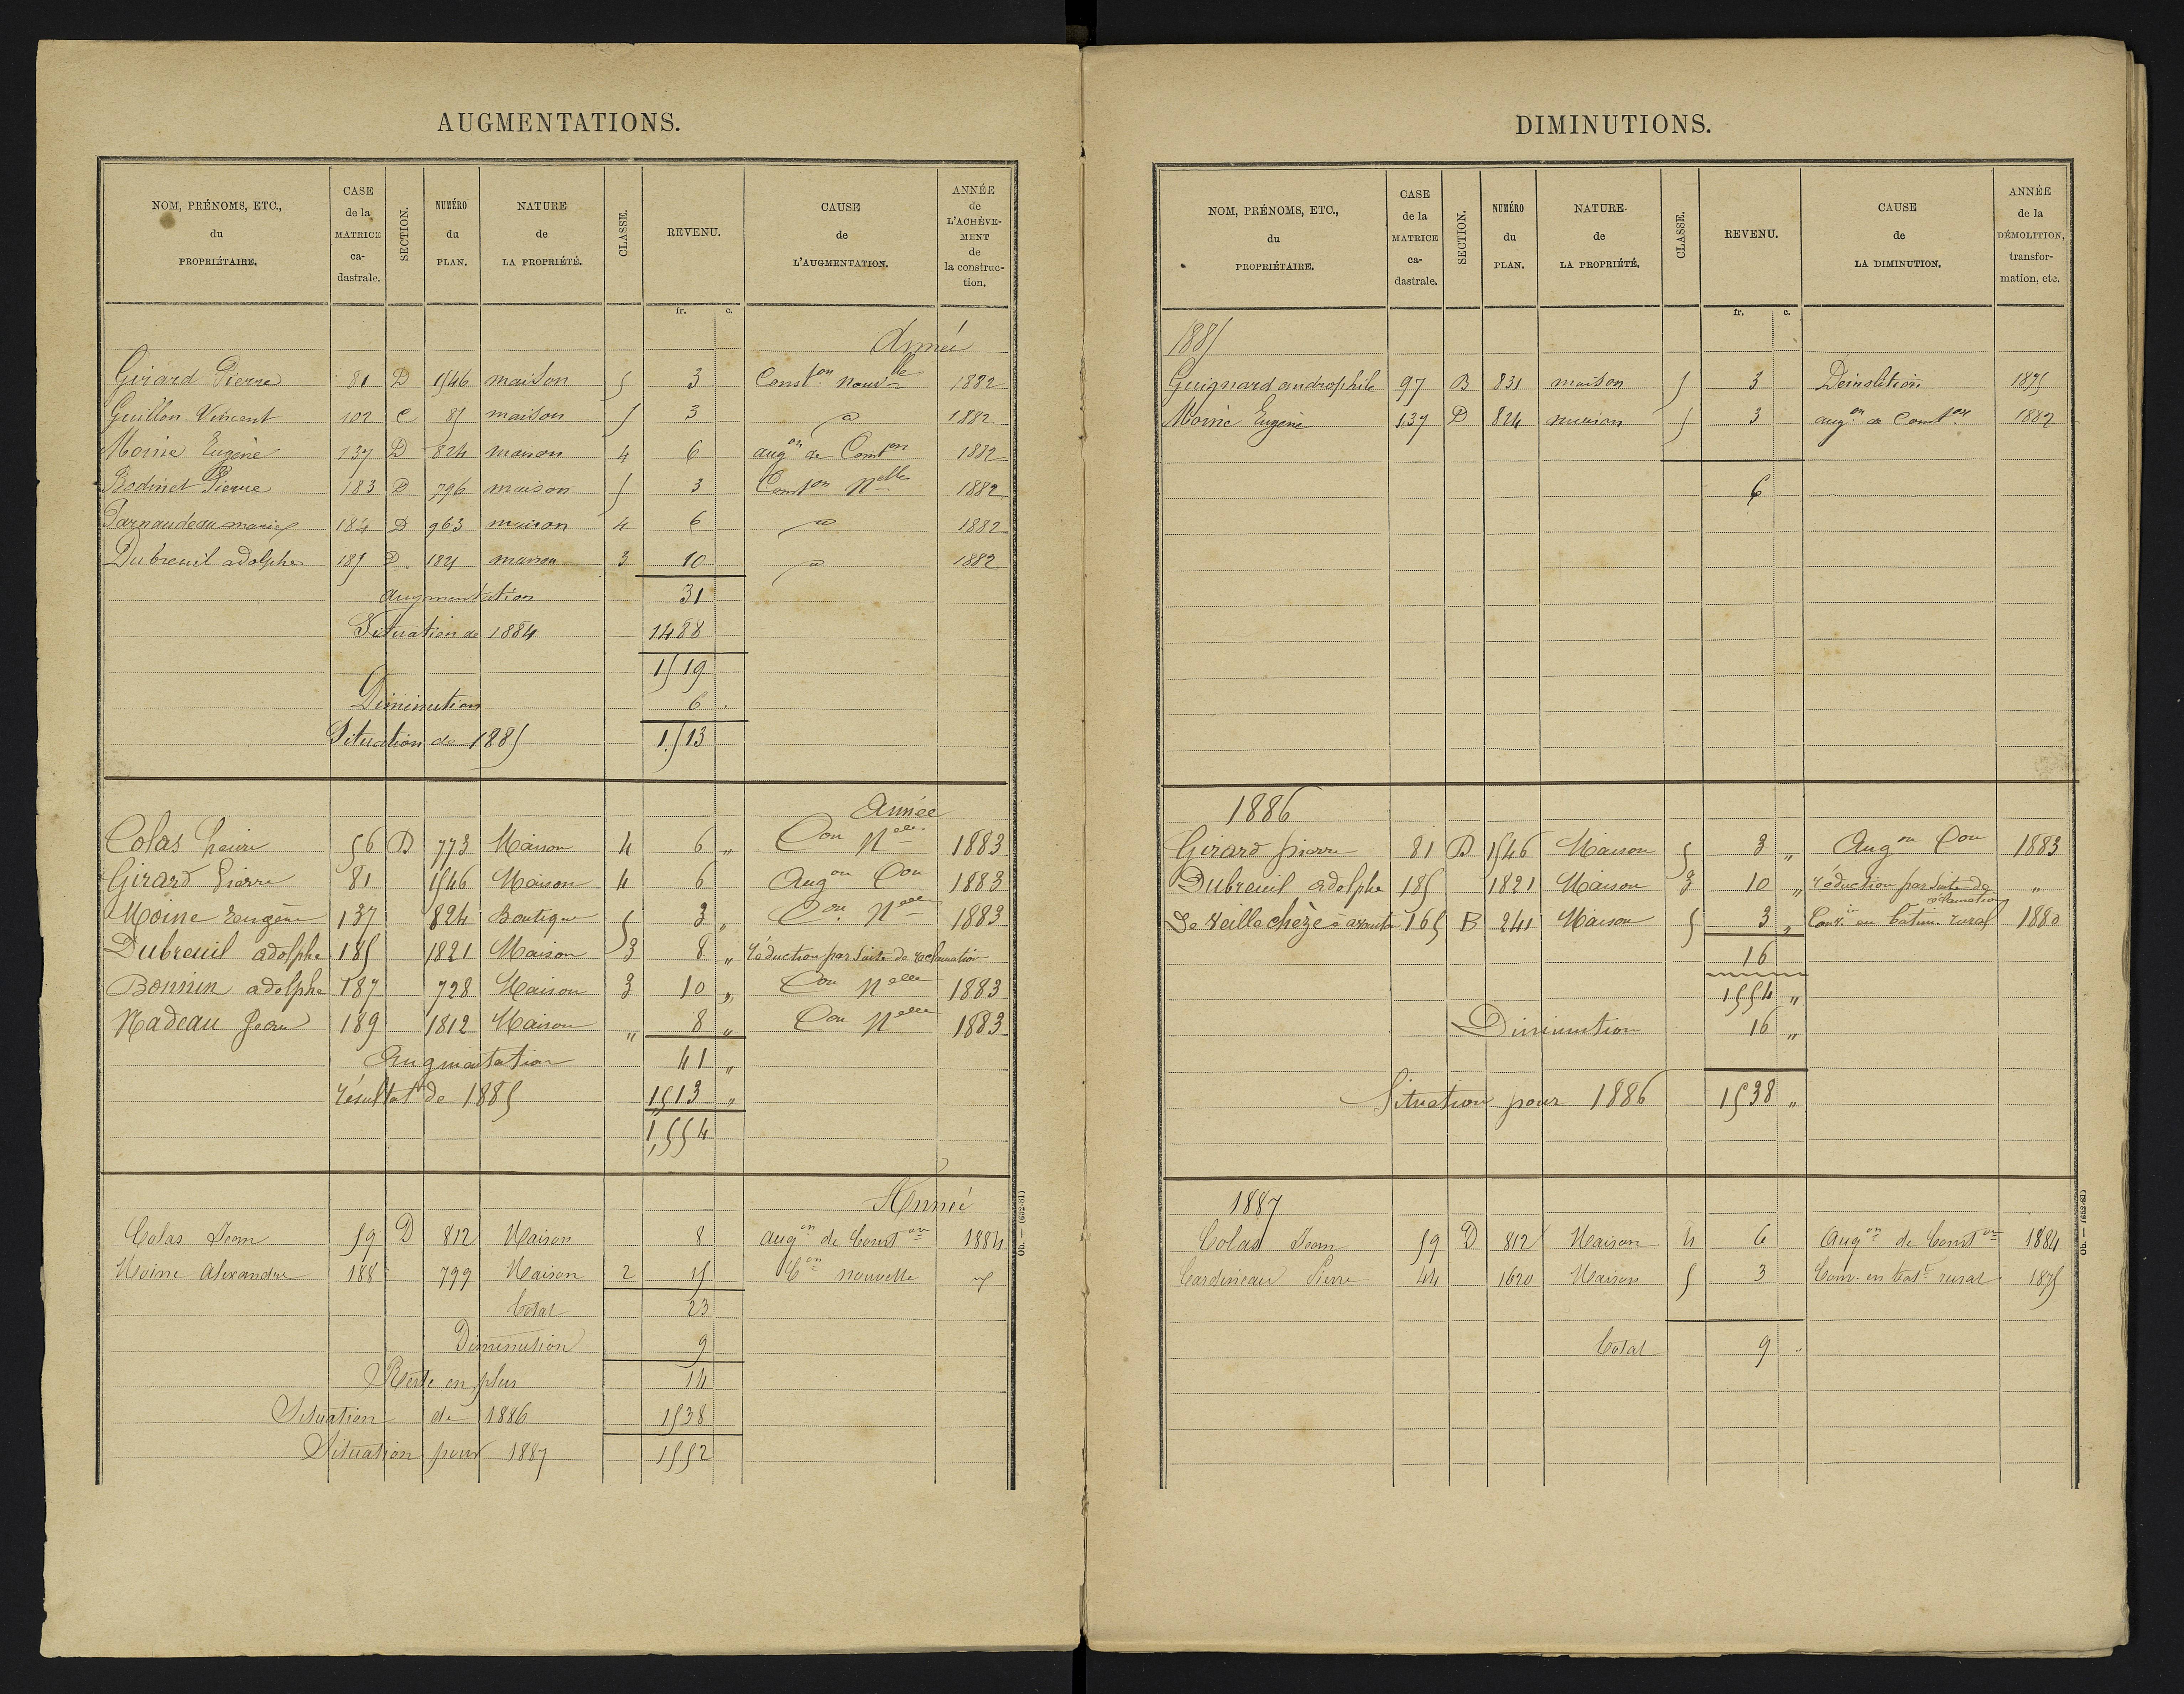 AUGMENTATIONS.
NOM, PRÉNOMS, ETC., du PROPRIÉTAIRE.
CASE de la MATRICE ca-dastrale.
SECTION.
NUMÉRO du PLAN.
NATURE de LA PROPRIÉTÉ.
CLASSE.
REVENU.
CAUSE de L'AUGMENTATION.
ANNÉE de L'ACHÈVE-MENT de la construc-tion.
fr. c.
Année
Girard Pierre 81 D 1546 maison 5 3 Const.on nouv.lle 1882
Guillon Vincent 102 C 85 maison 5 3 d 1882
Moine Eugène 137 D 824 maison 4 6 aug.on de Const.on 1882
Bodinet Pierre 183 D 796 maison 5 3 Const.on Nelle 1882
Parnaudeau marie 184 D 963 maison 4 6 d 1882
Dubreuil adolphe 185 D. 1821 maison 3 10 d 1882
augmentation 31
Situation de 1884 1488
1519
Diminution 6
Situation de 1885 1513
Année
Colas henri 56 D 773 Maison 4 6 " Con Nelle 1883
Girard Pierre 81 1546 Maison 4 6 Augon Con 1883
Moine Eugène 137 824 Boutique 5 3 " Con Nelle 1883
Dubreuil adolphe 185 1821 Maison 3 8 " réduction par suite de reclamation
Bonnin adolphe 187 728 Maison 3 10 " Con Nelle 1883
Nadeau Jean 189 1812 Maison " 8 " Con Nelle 1883
Augmentation 41 "
résultat de 1885 1513 "
1,554
Année
Colas Jean 59 D 812 Maison 8 augon de Const on 1884
Moine Alexandre 188 799 Maison 2 15 Con nouvelle
Total 23
Diminution 9
Reste en plus 14
Situation de 1886 1538
Situation pour 1887 1552
Ob. — (652-81)
DIMINUTIONS.
NOM, PRÉNOMS, ETC., du PROPRIÉTAIRE.
CASE de la MATRICE ca-dastrale.
SECTION.
NUMÉRO du PLAN.
NATURE de LA PROPRIÉTÉ.
CLASSE.
REVENU.
CAUSE de LA DIMINUTION.
ANNÉE de la DÉMOLITION, transfor-mation, etc.
fr. c.
1885
Guignard androphile 97 B 831 maison 5 3 Démolition 1875
Moine Eugène 137 D 824 maison 5 3 aug.on de Const.on 1882
6
1886
Girard pierre 81 D 1546 Maison 5 3 " Augon Con 1883
Dubreuil adolphe 185 1821 Maison 3 10 " réduction par suite de réclamation "
De Veillechèze à 165 B 241 Maison 5 3 " en batim. rural 1880
16
1554 "
Diminution 16 "
Situation pour 1886 1538 "
1887
Colas Jean 59 D 812 Maison 4 6 Augon de Const on 1884
Cardineau Pierre 44 1620 Maison 5 3 Conv. en bat.t rural 1875
Total 9
Ob. — (652-81)